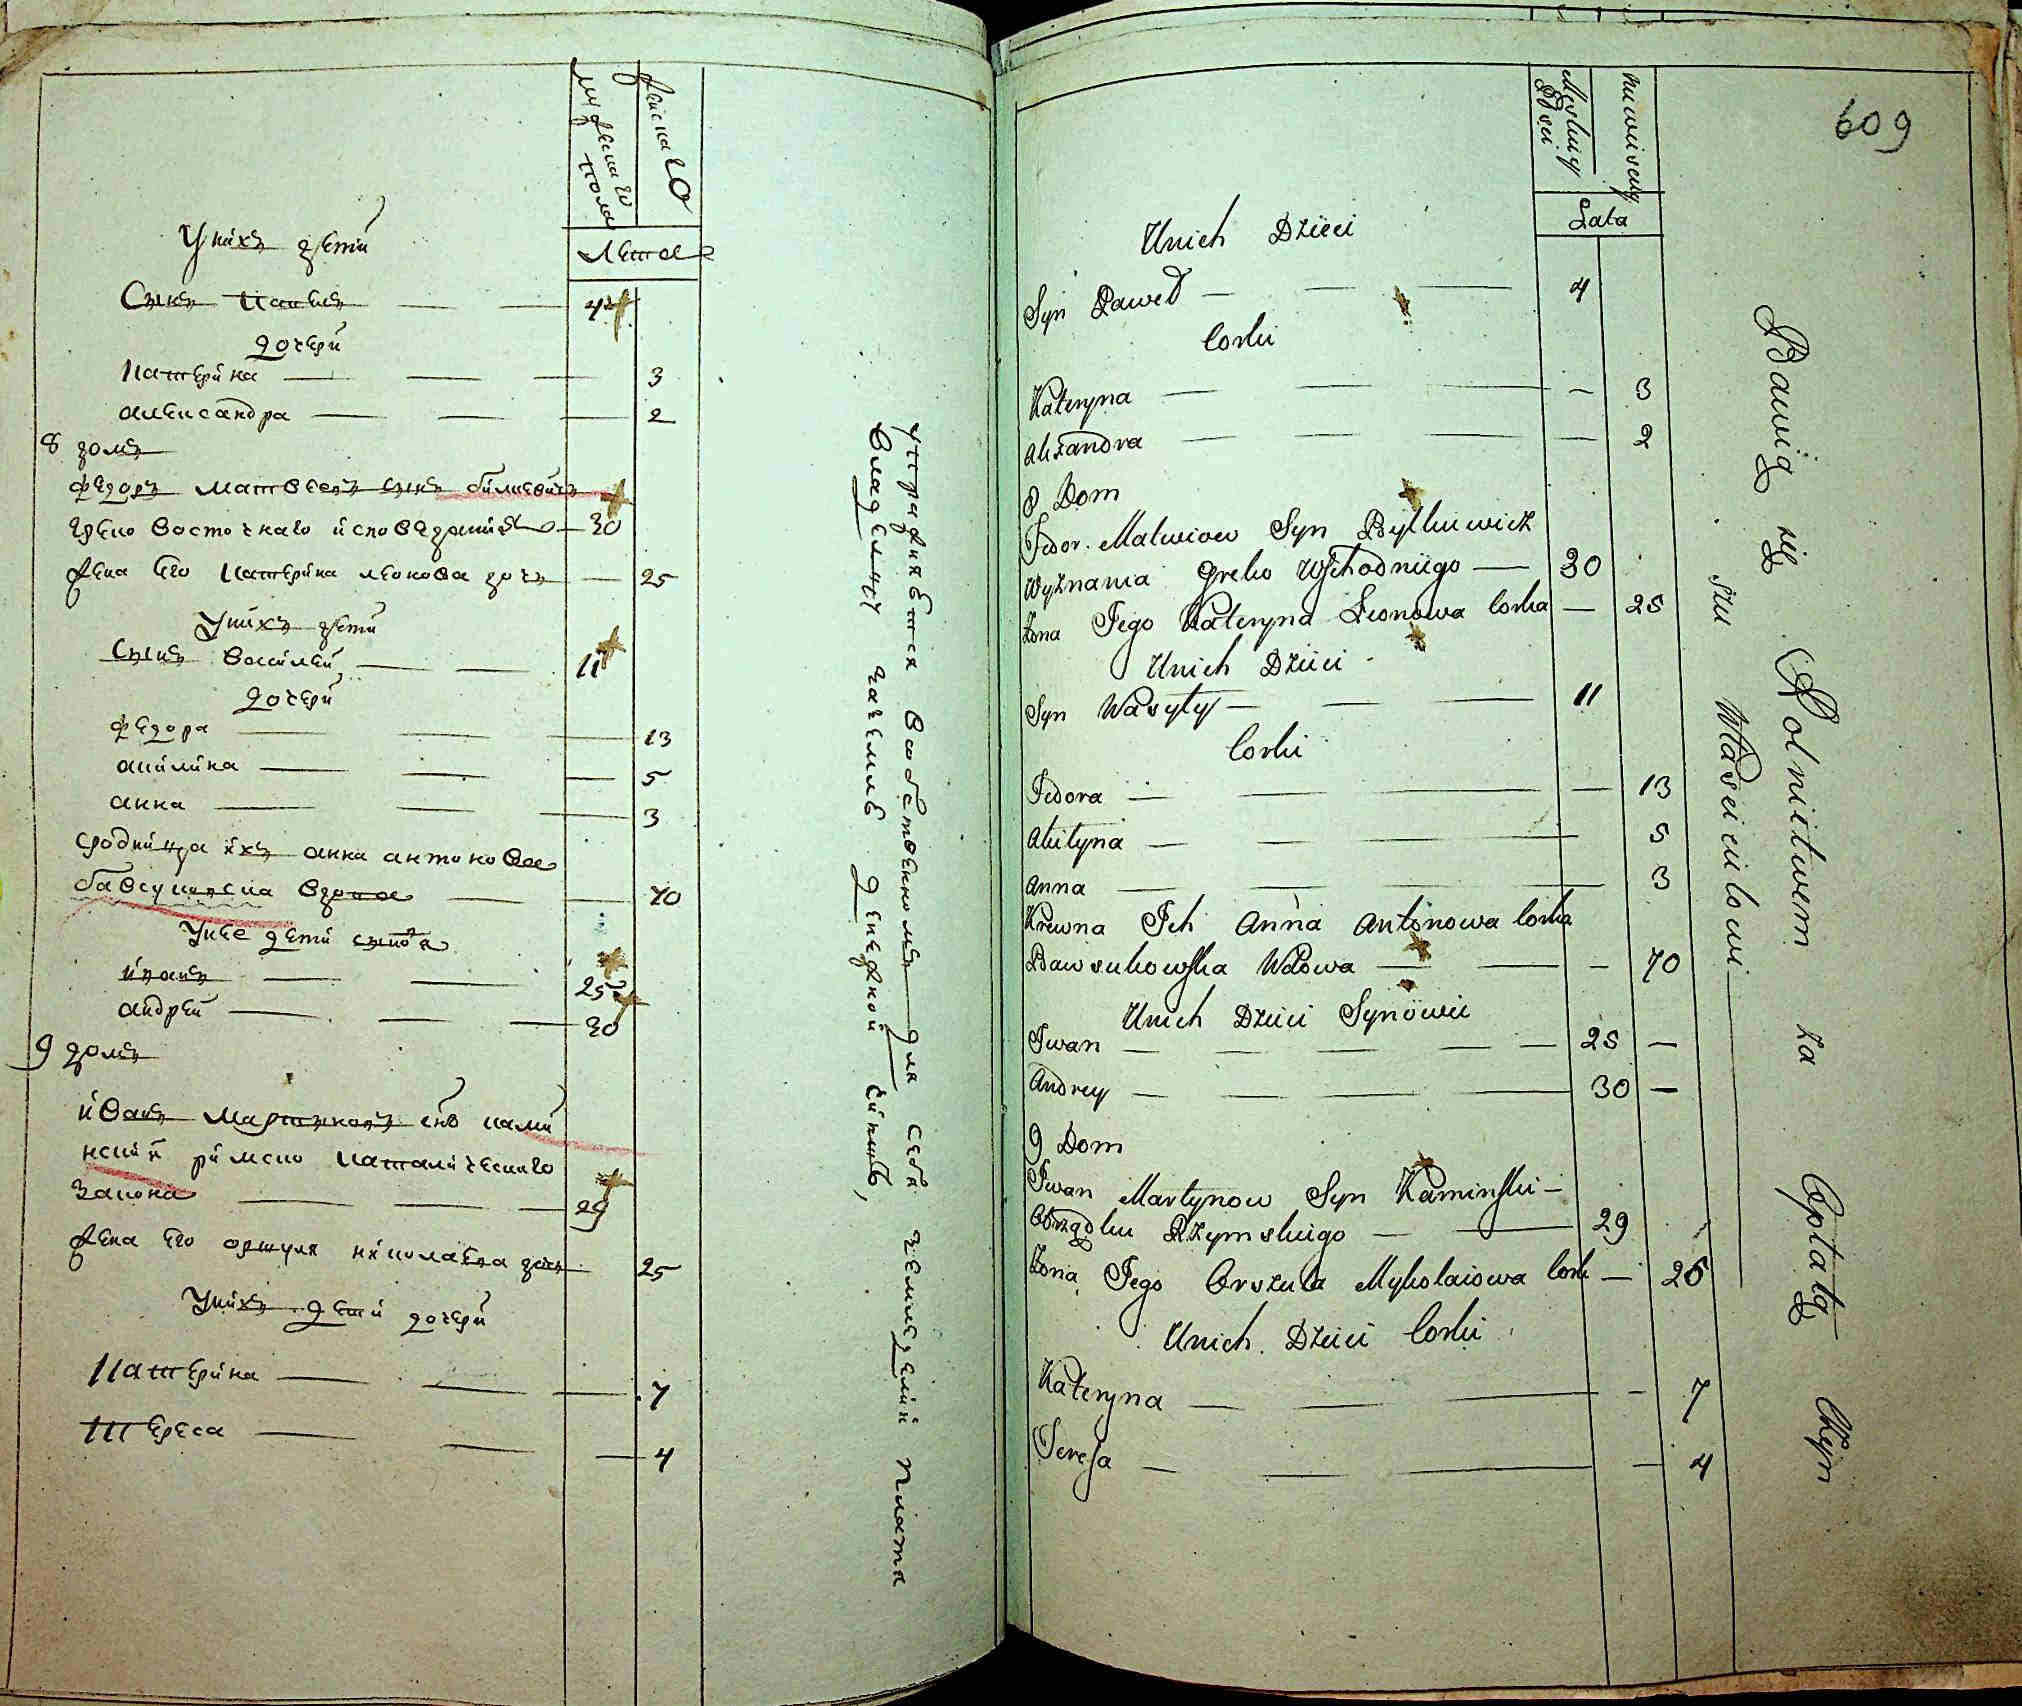 Мужеска го пола
Женска го
Лета
У них детй
Сынъ Павелъ — — 4
дочерй
Катерйна — — — 3
александра — — — 2
8 домъ
Федоръ Матвеевъ сынъ бйлкевйчъ
греко восточнаго йсповеданйя — 30
Жена Его Катерйна леонова дочъ — 25
Унйхъ детй
Сынъ Васйлей — — 11
дочерй
Федора — — — 13
акйлйна — — — 5
анна — — — 3
сроднйца йхъ анна антонова
бавсуковска вдова — — 70
Унее детй сынов
йванъ — — 25
андрей — — — 30
9 домъ
йванъ Мартыновъ снъ камй
нскйй рймско Каталйческаго
закона — — — 29
Жена Его оршуля нйколаева дочъ 25
Унйхъ детй дочерй
Катерйна — — — 7
Тереса — — — 4
упражняется вообственномъ для себя земледелйй плата
владелцу за землю денежной
609
Męskiey Płci
Niewiesciey
Lata
Unich Dzieci
Syn Paweł — — — 4
Corki
Kateryna — — — — 3
Alexandra — — — — 2
8 Dom
Fedor Matwiow Syn Bylkiewicz
Wyznania Greko Wschodniego — 30
Żona Jego Kateryna Leonowa Corka — 25
Unich Dzieci
Syn Wasyly — — — 11
Corki
Fedora — — — — 13
Akilyna — — — 5
Anna — — — — 3
Krewna Ich Anna Antonowa Corka
Bawsukowska Wdowa — — — 70
Unich Dzieci Synowie
Iwan — — — — — 25 —
Andrey — — — — 30 —
9 Dom
Iwan Martynow Syn Kaminski —
Obrządku Rzymskiego — — 29
Żona Jego Orszula Mykolaiowa Cork — 25
Unich Dzieci Corki
Kateryna — — — — 7
Teresa — — — — 4
Bawią się Rolnictwem za Opłatą Czyn
szu Własicielowi